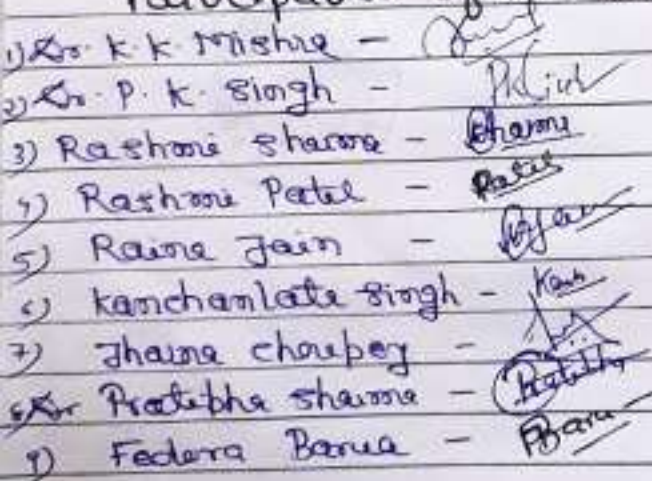 1) Dr. K. K. Mishra -
2) Dr. P. K. Singh - PKSingh
3) Rashmi Sharma - Sharma
4) Rashmi Patel - Patel
5) Raina Jain -
6) Kanchanlata Singh - Kanch
7) Jhaina Choupey -
8) Dr Pratibha Sharma - Pratibha
9) Federa Barua - FBarua